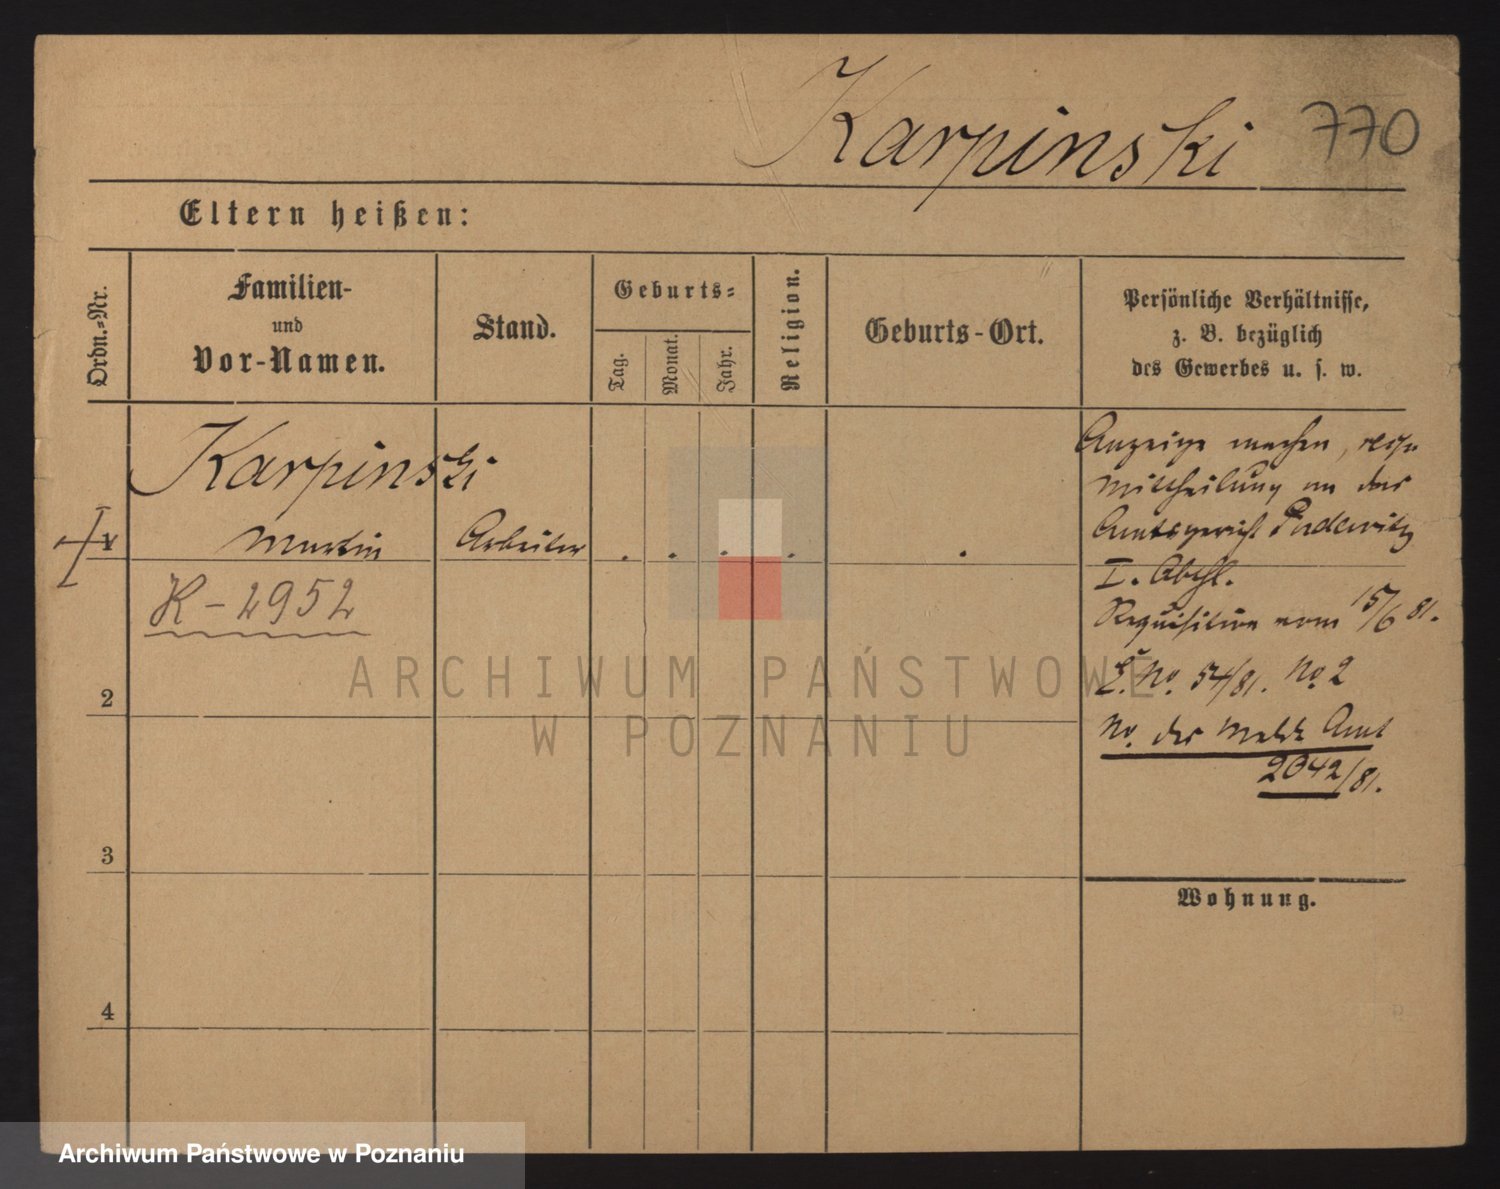 Karpinski 770
Eltern heißen:
Ordn.=Nr.
Familien-
und
Vor-Namen.
Stand.
Geburts=
Tag.
Monat.
Jahr.
Religion.
Geburts-Ort.
Persönliche Verhältnisse,
z. B. bezüglich
des Gewerbes u. s. w.
Karpinski
1 Martin Arbeiter
K-2952
Anzeige machen, resp.
Mittheilung an das
Amtsgericht Pudewitz
I. Abth.
Requisition vom 15/6 81.
L. No. 54/81. No. 2
No. des Melde Amt
2042/81.
2
3
4
Wohnung.
ARCHIWUM PAŃSTWOWE
W POZNANIU
Archiwum Państwowe w Poznaniu